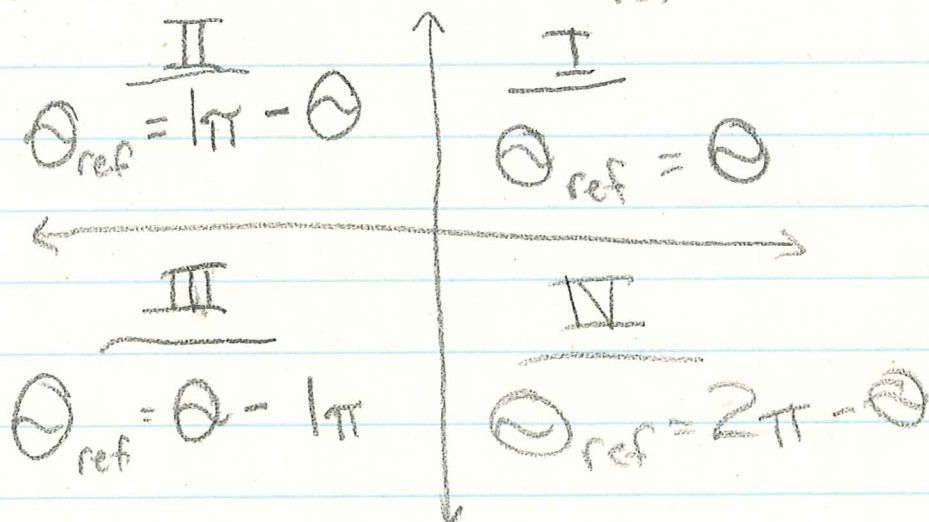 II
θref = 1π - θ
I
θref = θ
III
θref = θ - 1π
IV
θref = 2π - θ